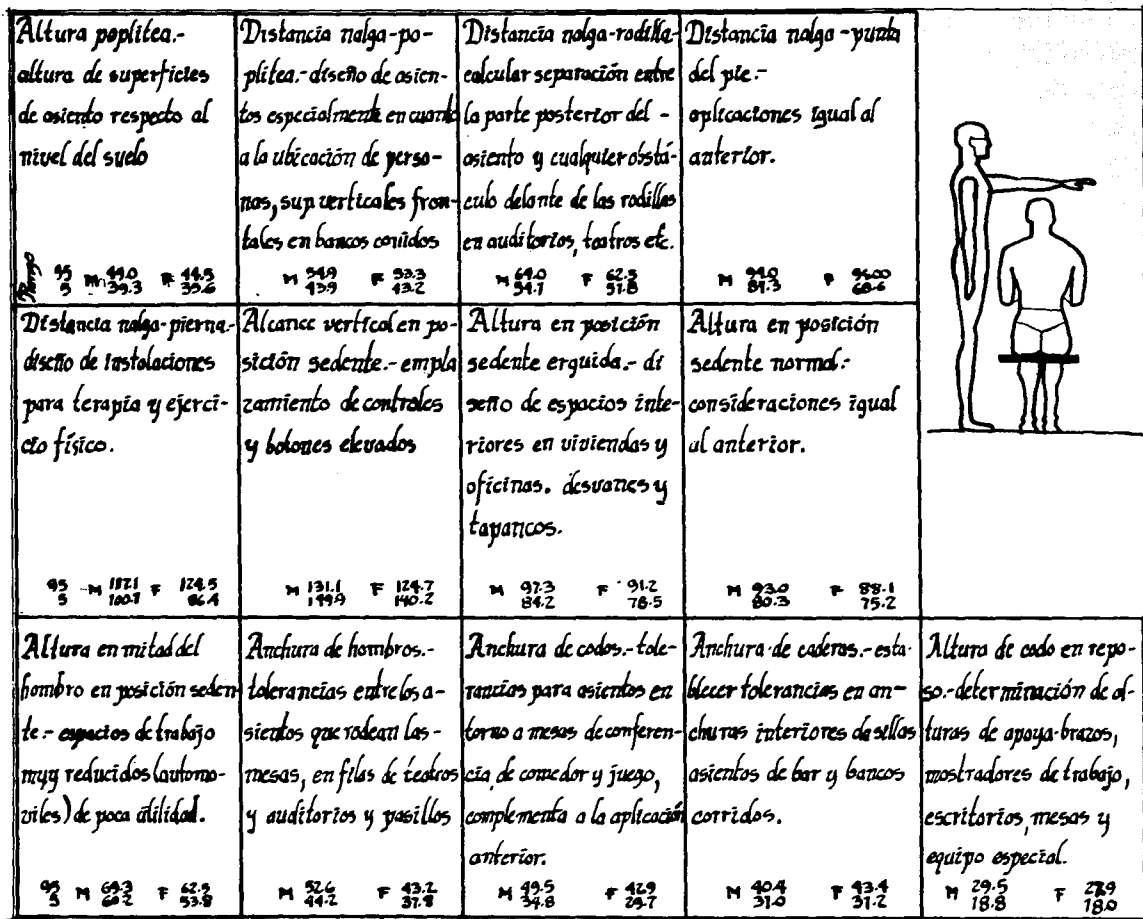 Altura poplitea.-
altura de superficies
de asiento respecto al
nivel del suelo
Rango 95 M 49.0 F 44.5
5 39.3 35.6
Distancia nalga-po-
plitea.-diseño de asien-
tos especialmente en cuanto
a la ubicación de perso-
nas, sup verticales fron-
tales en bancos corridos
M 54.9 F 53.3
43.9 43.2
Distancia nalga-rodilla-
calcular separación entre
la parte posterior del -
asiento y cualquier obstá-
culo delante de las rodillas
en auditorios, teatros etc.
M 64.0 F 62.5
54.1 51.8
Distancia nalga-punta
del pie.-
aplicaciones igual al
anterior.
M 94.0 F
81.3 68.6
Distancia nalga-pierna.-
diseño de instalaciones
para terapia y ejerci-
cio físico.
95 M 117.1 F 124.5
5 100.1 86.4
Alcance vertical en po-
sición sedente.- empla
zamiento de controles
y botones elevados
M 131.1 F 124.7
149.9 140.2
Altura en posición
sedente erguida.- di
seño de espacios inte-
riores en viviendas y
oficinas. desvanes y
tapancos.
M 97.3 F 91.2
84.2 78.5
Altura en posición
sedente normal.-
consideraciones igual
al anterior.
M 93.0 F 88.1
80.3 75.2
Altura en mitad del
hombro en posición seden
te.- espacios de trabajo
muy reducidos (automo-
viles) de poca utilidad.
95 M 69.3 F 62.5
5 60.2 53.8
Anchura de hombros.-
tolerancias entre los a-
sientos que rodean las-
mesas, en filas de teatros
y auditorios y pasillos
M 52.6 F 43.2
44.2 37.8
Anchura de codos.-tole-
rancias para asientos en
torno a mesas de conferen-
cia de comedor y juego,
complementa a la aplicación
anterior.
M 49.5 F 42.9
34.8 29.7
Anchura de caderas.-esta-
blecer tolerancias en an-
churas interiores de sillas
asientos de bar y bancos
corridos.
M 40.4 F 43.4
31.0 31.2
Altura de codo en repo-
so.-determinación de al-
turas de apoya-brazos,
mostradores de trabajo,
escritorios, mesas y
equipo especial.
M 29.5 F 27.9
18.8 18.0